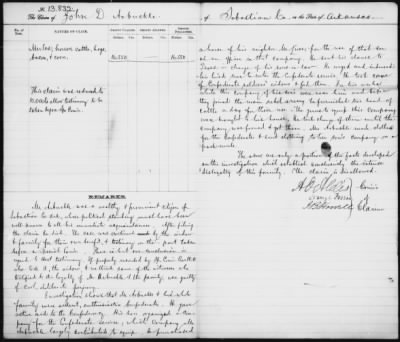 N. 13,832
The Claim of John D. Arbuckle, of Sebastian Co. in the State of Arkansas.
No. of Claim. NATURE OF CLAIM. AMOUNT CLAIMED. AMOUNT ALLOWED. AMOUNT DISALLOWED.
Dollars. Cts. Dollars. Cts. Dollars. Cts.
Mules, horses, cattle, hogs,
bacon, & corn.
This claim was reduced to
to be
taken before
REMARKS.
Mr. Arbuckle was a wealthy & prominent citizen of
Sebastian Co. Ark., whose political standing must have been
well known to all his immediate acquaintances. After filing
the claim he died. The case was continued by the widow
& family for their own benefit, & testimony on their part taken
before a special Com'r. There is but one conclusion in
regard to that testimony. If properly recorded by
who took it, the widow & children & some of the witnesses who
testified to the loyalty of Mr. Arbuckle & the family, are guilty
of cool, deliberate perjury.
Investigation shows that Mr. Arbuckle & his whole
family were ardent, enthusiastic Confederates. He gave
active aid to the Confederacy. His son organized a com-
pany for the Confederate Service, which company Mr.
Arbuckle largely contributed to equip. He purchased
a horse of his neighbor Mr. for the use of that son
as an officer in that company. He sent his slaves to
Texas in charge of his sons in law. He urged and induced
his sons to enter the Confederate service. He took
Confederate soldiers' and fed them. In his
while this company of his son's was near him and before
they joined the main rebel army he furnished them a head of
cattle a day for their use. The private equip of this company
was brought to his house. He took charge of them until the
company was formed & got them. Mr. Arbuckle made clothes
for the Confederate & sent clothing to his son's company on a
pack-mule.
The above are only a portion of the facts developed
on the investigation which establish conclusively the intense
disloyalty of this family. The claim is disallowed.
A. O. Aldis
Orange Ferriss
J. B. Howell
Com'rs
of
Claims